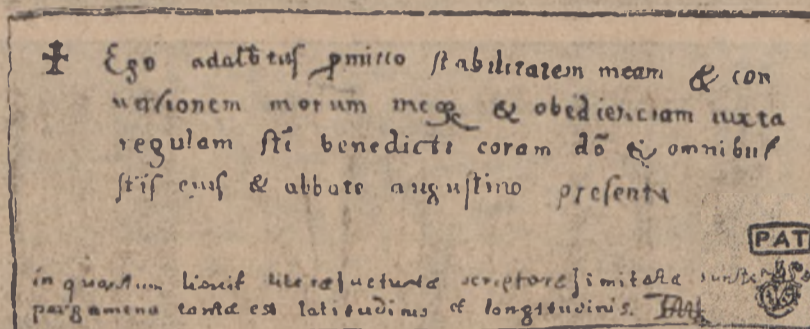 ✝ Ego adalb̄tus ꝓmitto stabilitatem meam & con
uersionem morum meoꝝ & obedienciam iuxta
regulam sc̄i benedicti coram dō & omnibus
sc̄is eius & abbate augustino presenti
in quantum licuit litterae uetustae scriptore imitatae sunt
pergamena tantae est latitudinis et longitudinis.
PAT